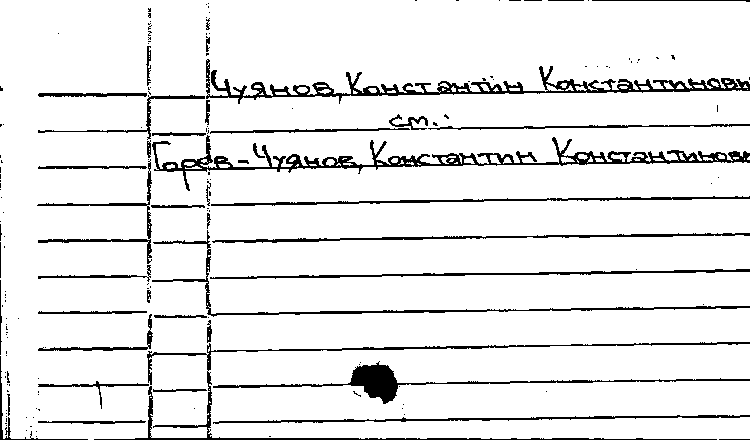 Чуянов, Константин Константинови
см.:
Горев-Чуянов, Константин Константинови